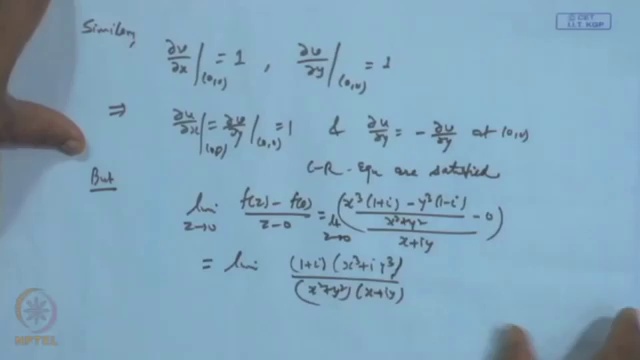 © CET
I.I.T. KGP
Similarly
∂v/∂x|(0,0) = 1 , ∂v/∂y|(0,0) = 1
⇒ ∂u/∂x|(0,0) = ∂v/∂y|(0,0) = 1 & ∂u/∂y = - ∂v/∂y at (0,0)
C-R. Equ are satisfied
But
lim z→0 f(z) - f(0) / z-0 = lt z→0 ( x³(1+i) - y³(1-i) / x²+y² - 0 / x+iy )
= lim (1+i) (x³+iy³) / (x²+y²) (x+iy)
NPTEL